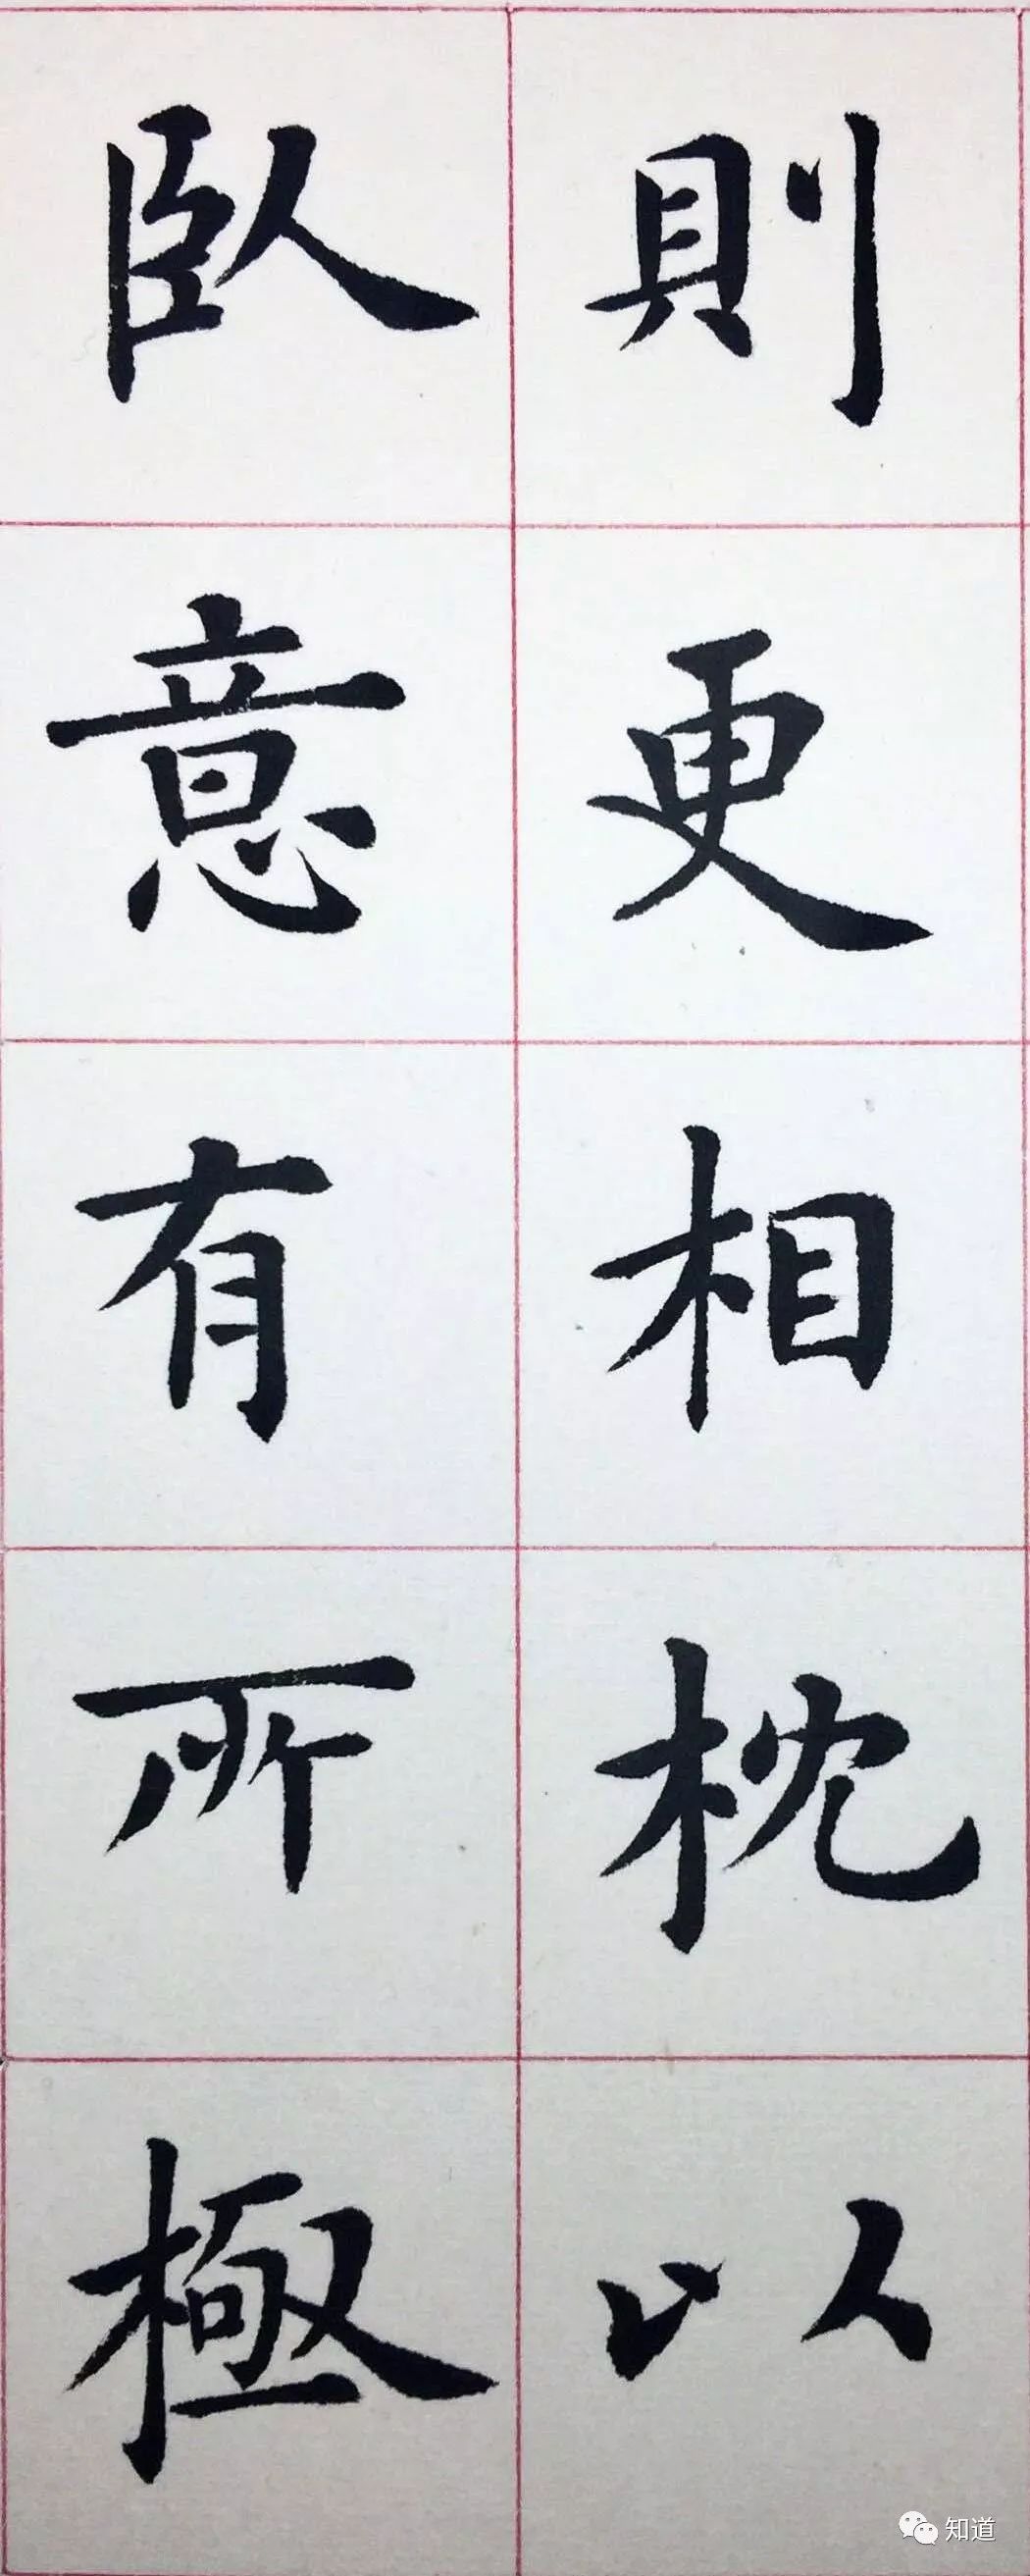 則更相枕以
臥意有所極
知道